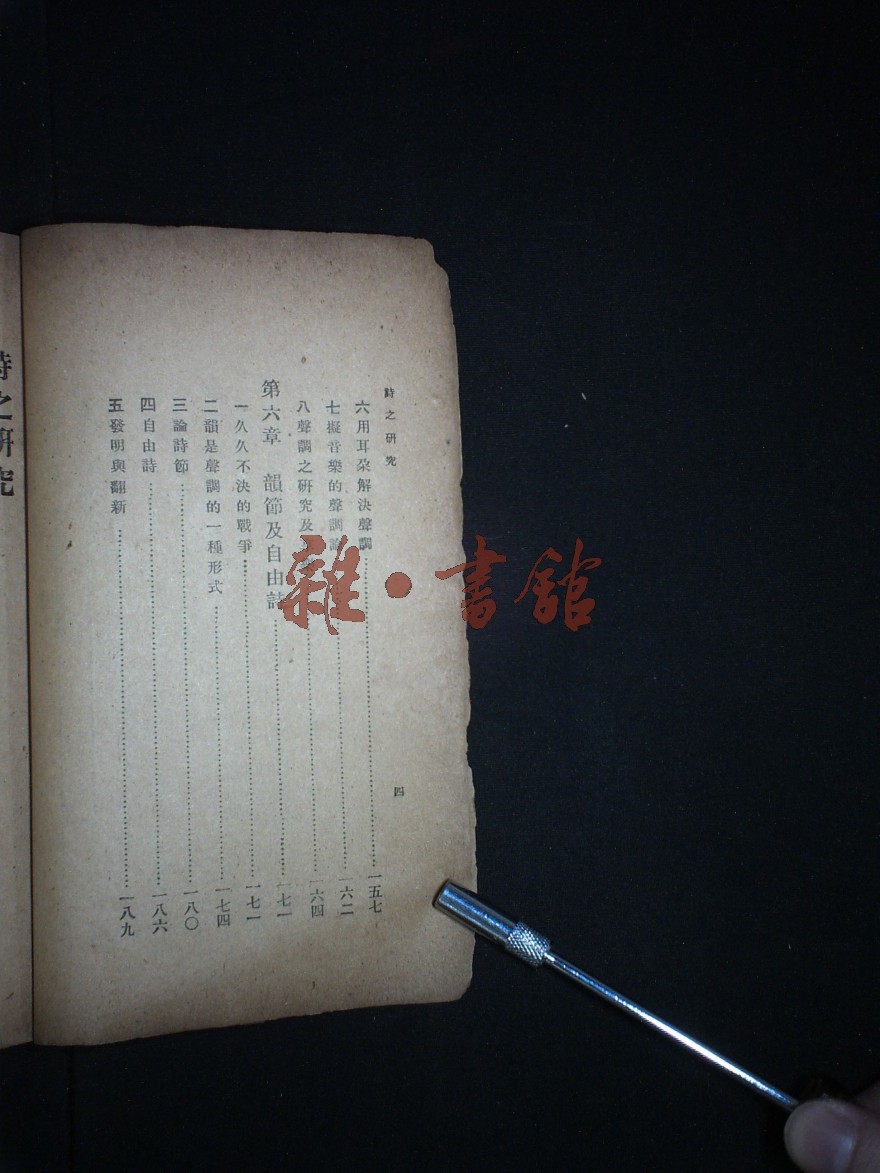 詩之研究
四
六用耳朶解決聲調……一五七
七擬音樂的聲調論……一六二
八聲調之研究及……一六四
第六章 韻節及自由詩……一七一
一久久不決的戰爭……一七一
二韻是聲調的一種形式……一七四
三論詩節……一八〇
四自由詩……一八六
五發明與翻新……一八九
詩之研究
雜·書館